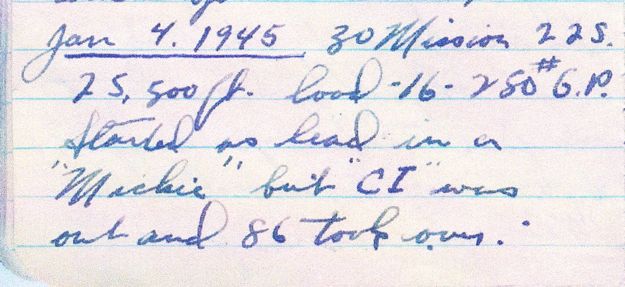 Jan 4. 1945 30 Mission 225.
25,500 ft. load -16- 250# G.P.
Started as lead in a
"Mickie" but "CI" was
out and 86 took over.